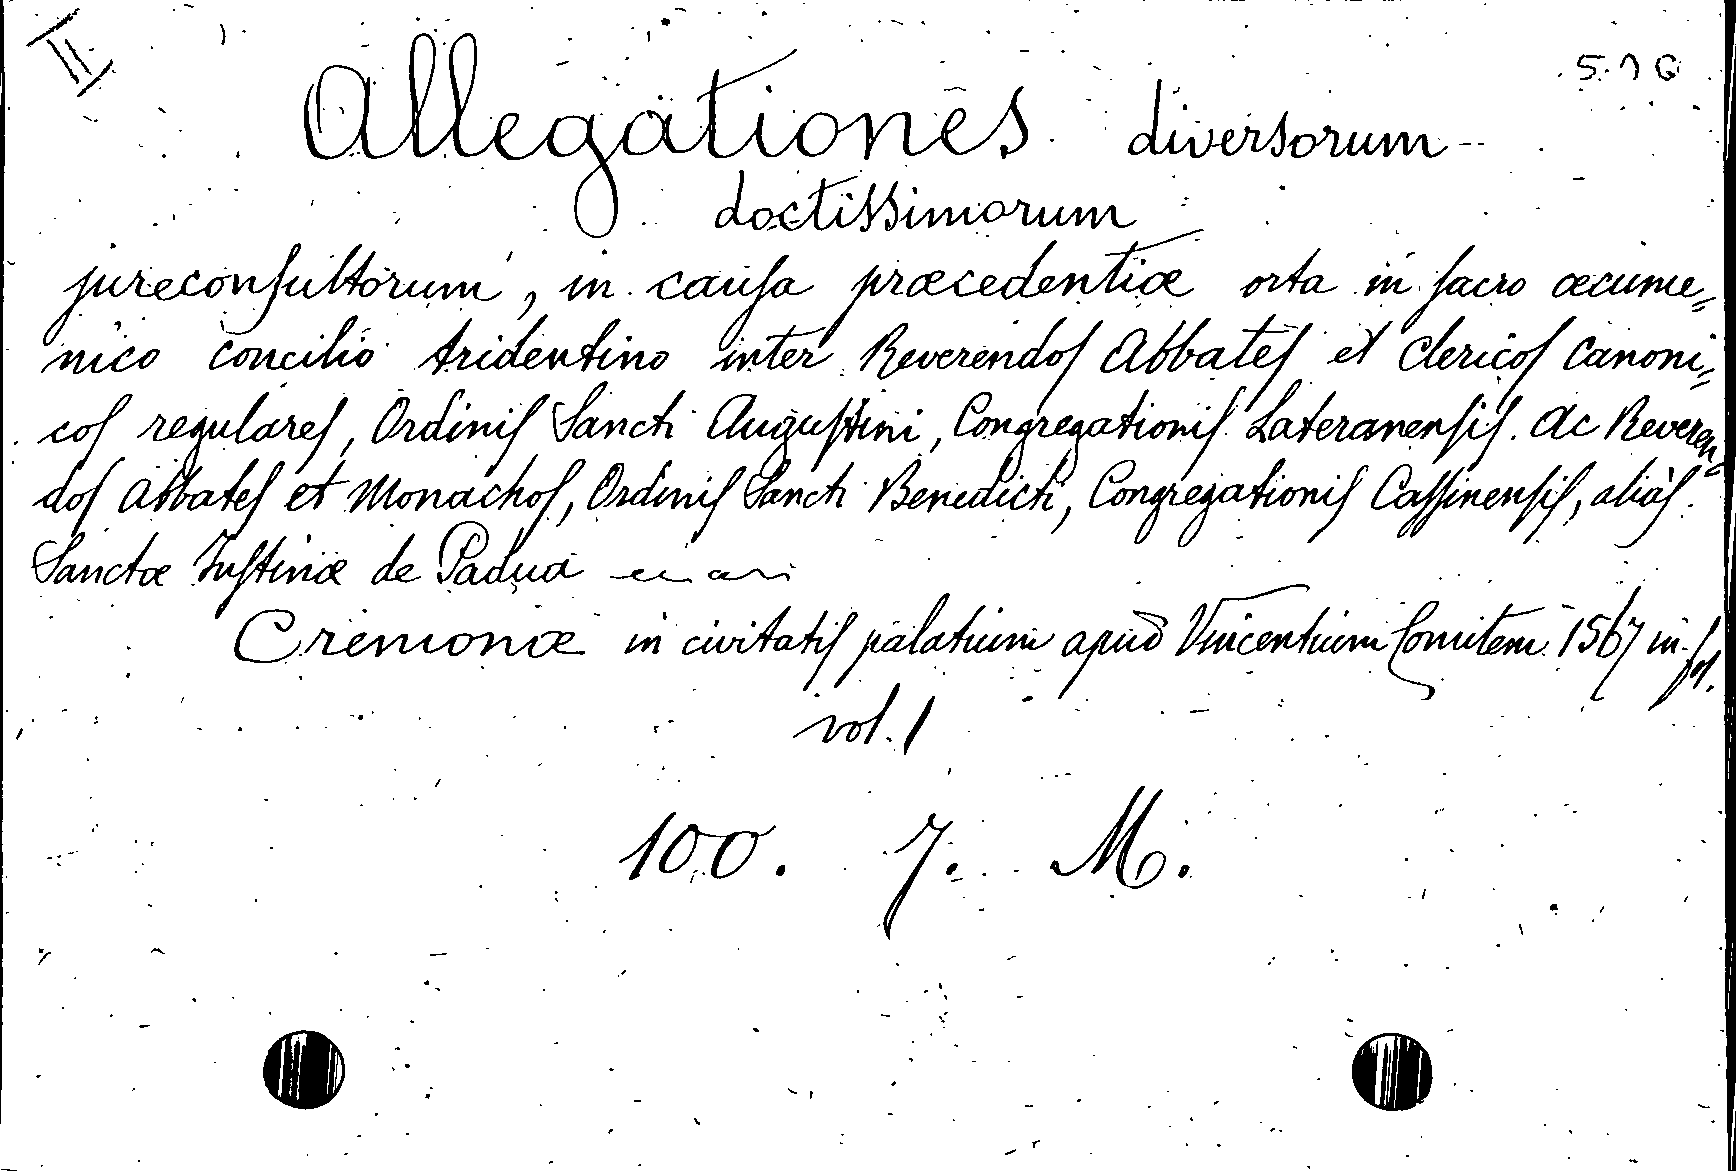 II
5.1G
Allegationes diversorum
doctissimorum
jureconsultorum, in causa præcedentiæ orta in sacro œcume„
nico concilio tridentino inter Reverendos Abbates et Clericos Canoni„
cos regulares, Ordinis Sancti Augustini, Congregationis Lateranensis. Ac Reveren„
dos Abbates et Monachos, Ordinis Sancti Benedicti, Congregationis Cassinensis, aliàs
Sanctæ Justinæ de Padua
Cremonæ in civitatis palatium apud Vincentium Comitem 1567 in-fol.
vol. 1
100. 7. M.